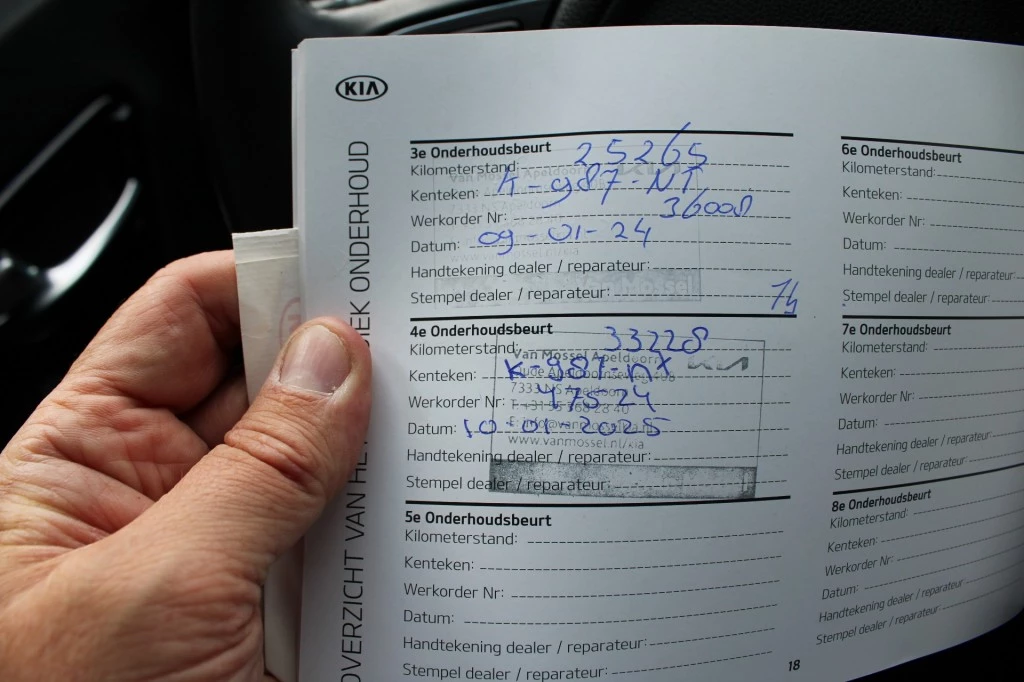 KIA
OVERZICHT VAN HE IEK ONDERHOUD
3e Onderhoudsbeurt
Kilometerstand: 25265
Kenteken: K-987-NT
Werkorder Nr: 36008
Datum: 09-01-24
Handtekening dealer / reparateur:
Stempel dealer / reparateur:
4e Onderhoudsbeurt
Kilometerstand: 33228
Kenteken: K-987-NX
Werkorder Nr: 47524
Datum: 10-01-2025
Handtekening dealer / reparateur:
Stempel dealer / reparateur:
Van Mossel Apeldoorn
KIA
7333 NS Apeldoorn
www.vanmossel.nl/kia
5e Onderhoudsbeurt
Kilometerstand:
Kenteken:
Werkorder Nr:
Datum:
Handtekening dealer / reparateur:
Stempel dealer / reparateur:
6e Onderhoudsbeurt
Kilometerstand:
Kenteken:
Werkorder Nr:
Datum:
Handtekening dealer / reparateur:
Stempel dealer / reparateur:
7e Onderhoudsbeurt
Kilometerstand:
Kenteken:
Werkorder Nr:
Datum:
Handtekening dealer / reparateur:
Stempel dealer / reparateur:
8e Onderhoudsbeurt
Kilometerstand:
Kenteken:
Werkorder Nr:
Datum:
Handtekening dealer / reparateur:
Stempel dealer / reparateur:
18